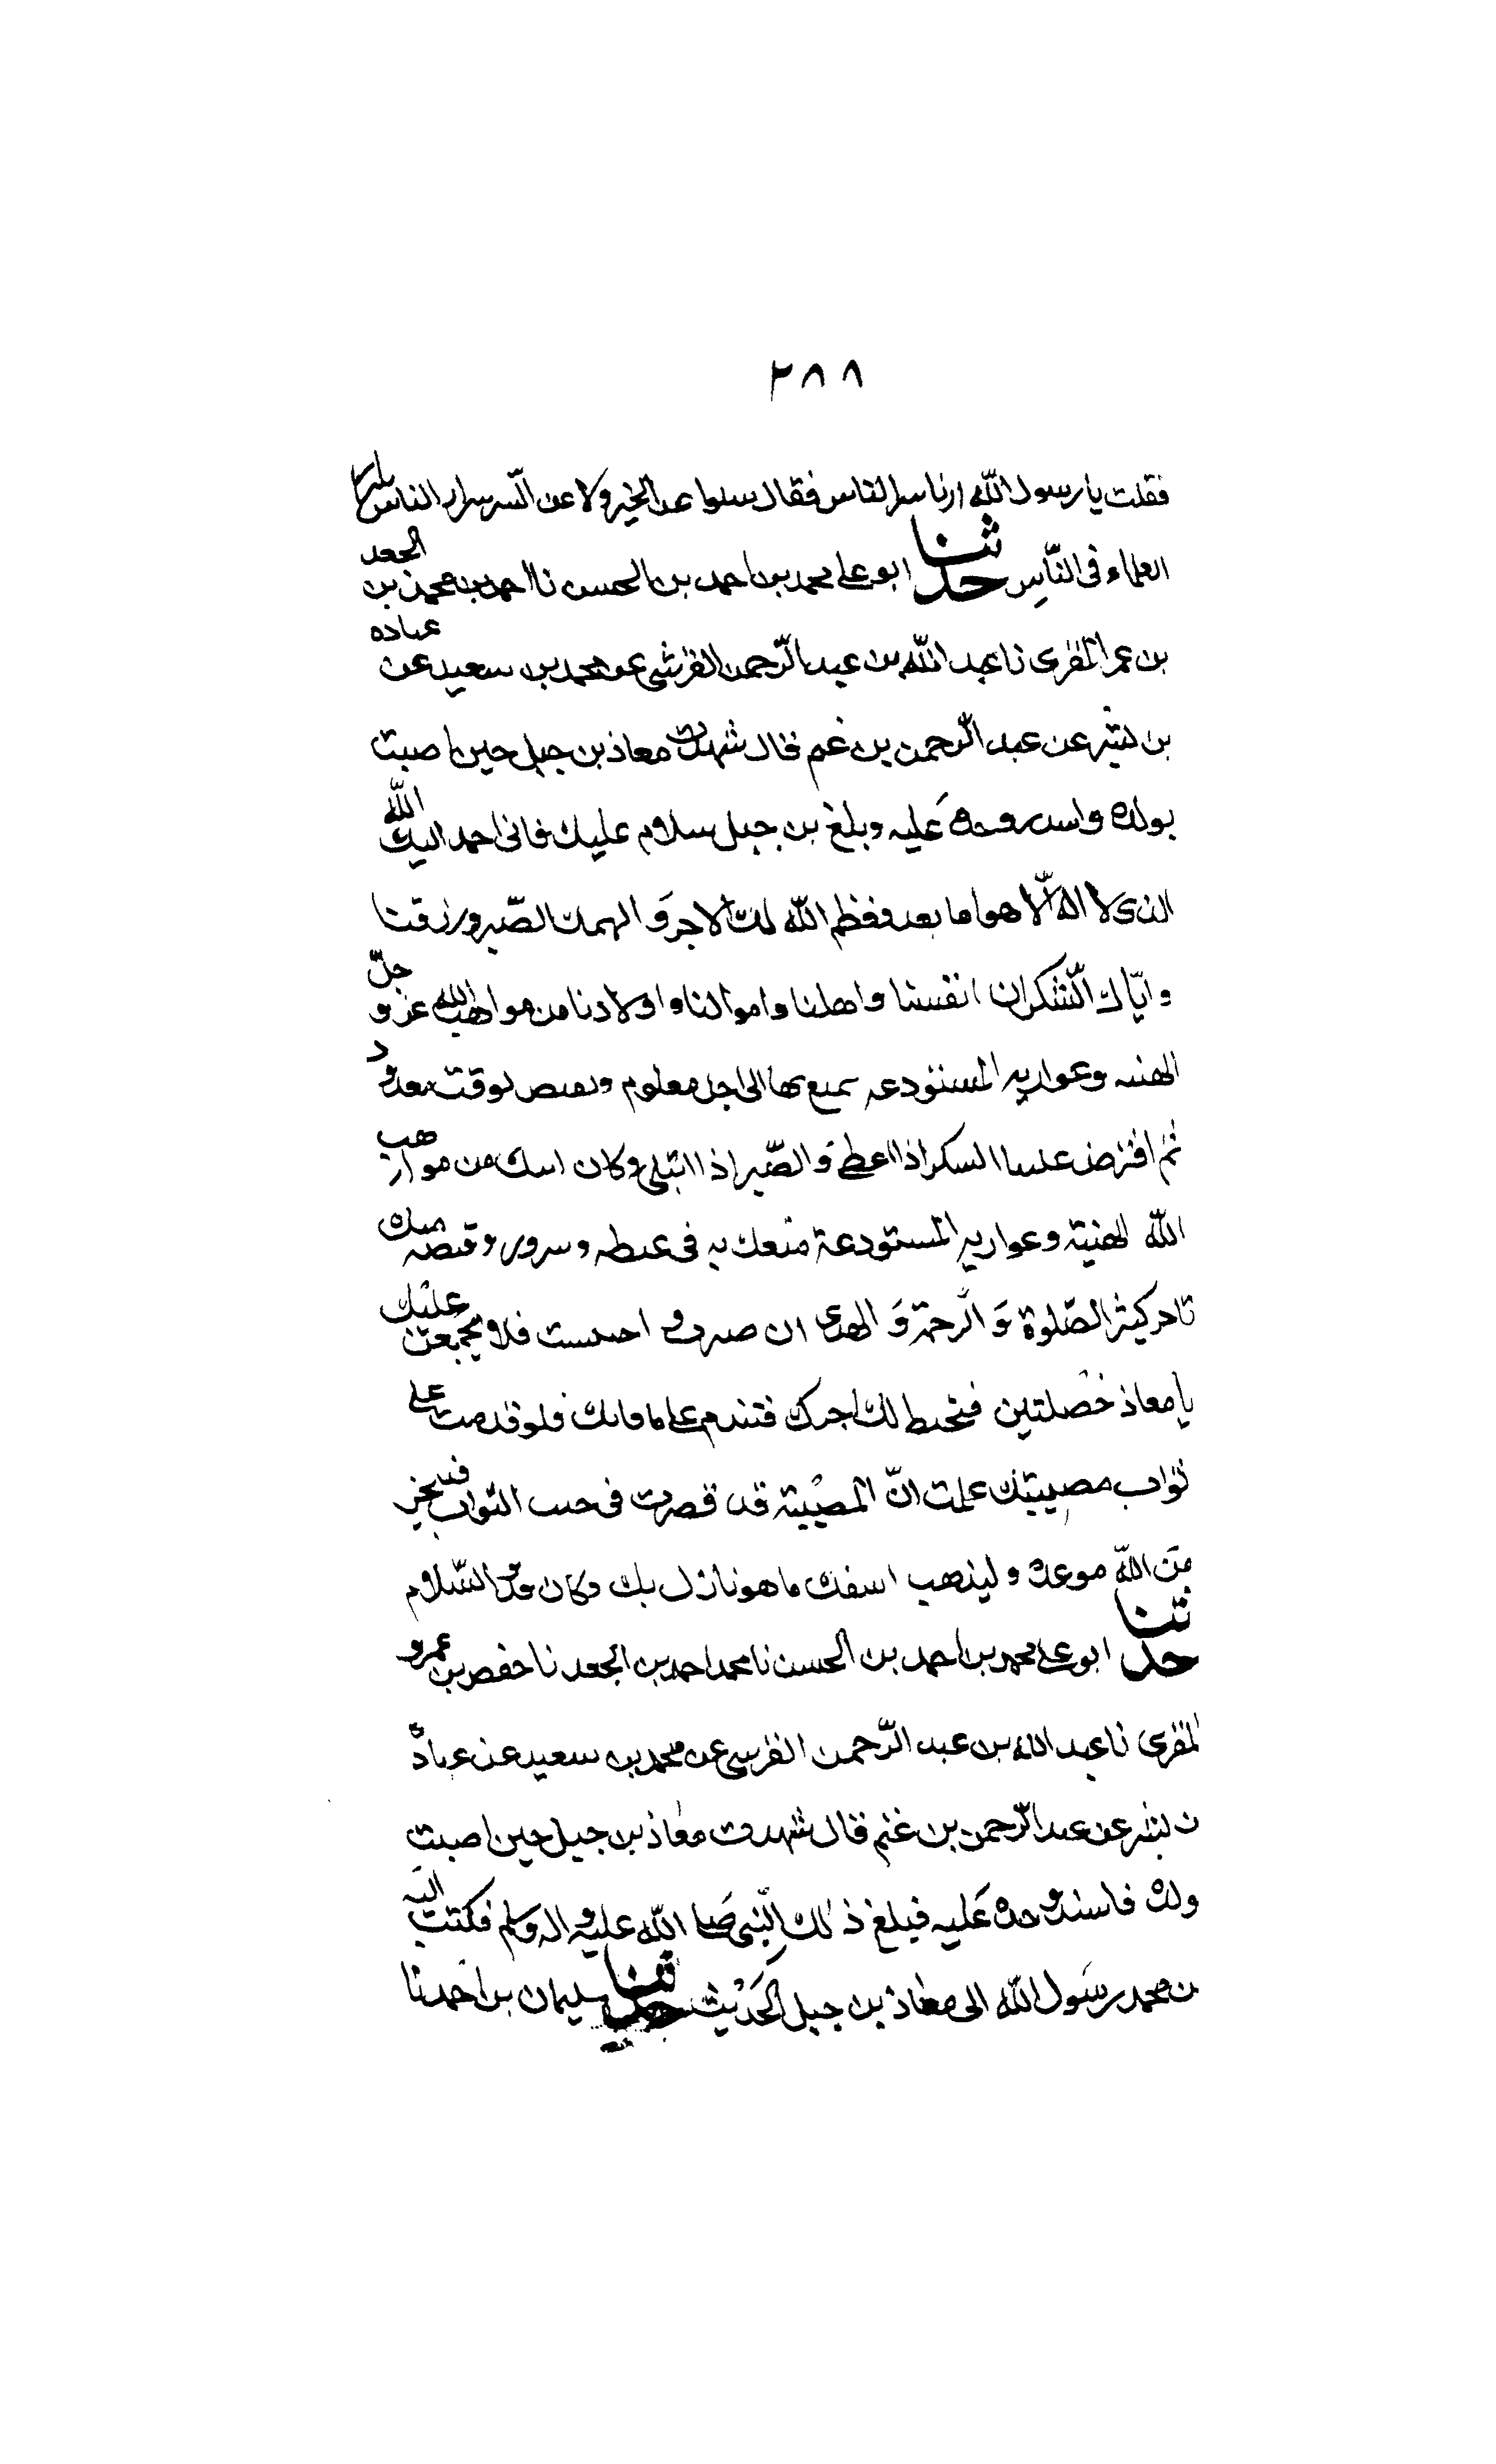 ٢٨٨
فقلت يا رسول الله ارنا سرالناس فقال سلوا عن الخير ولا عن السر سرار الناس
العلماء فى النّاسِ حدثنا ابو على محمد بن احمد بن الحسن نا احمد بن محمد بن الجعد
بن عمر المقرى نا عبد الله بن عبد الرّحمن القرشى عن محمد بن سعيد عن عباده
بن عن عبد الرّحمن بن غم قال شهدت معاذ بن جبل حين اصبت
بولده عليه وبلغ بن جبل سلام عليك فانى احمد اليك الله
الذى لا اله الّا هو اما بعد فعظم الله لك الاجر وَ الهمك الصّبر ورزقنا
و ايّاك الشكر ان انفسنا و اهلنا و اموالنا و اولادنا من مواهب الله عز و جلّ
الهنيه وعواريه المستودعه يمتع بها الى اجل معلوم ويقبض لوقت معدود
ثم افترض علينا السكر اذا اعطى وَ الصّبر اذا ابتلى وكان ابنك من مواهب
الله الهنيّة و عواريه المستودعة متعك به فى غبطه وسرور وقبضه منك
باجر كيثر الصّلوة وَ الرحمة وَ الهدى ان صبرت و احتسبت فلا يجمعن عليك
يا معاذ خصلتين فيحبط لك اجرك فتندم على ما فاتك فلو قدمت على
ثواب مصيبتك علمت انّ المصيبة قد قصرت فى حب الثواب
من الله موعده و ليذهب اسفك ما هو نازل بك وكان قد السّلام
حدثنا ابو على محمد بن احمد بن الحسن نا محمد احمد بن الجعد نا حفص بن عمرو
المقرى نا عبد الله بن عبد الرّحمن القرسى عن محمد بن سعيد عن عبادة
ن بشر عن عبد الرّحمن بن غنم قال شهدت معاذ بن جبل حين اصبت
ولده فاسند وحده عَليه فبلغ ذلك النّبى صَلى الله عليه و اله وسلم فكتب اليَه
ن محمد رسَول الله الى معاذ بن جبل الحَديْث حدثنا سليمان بن احمد نا